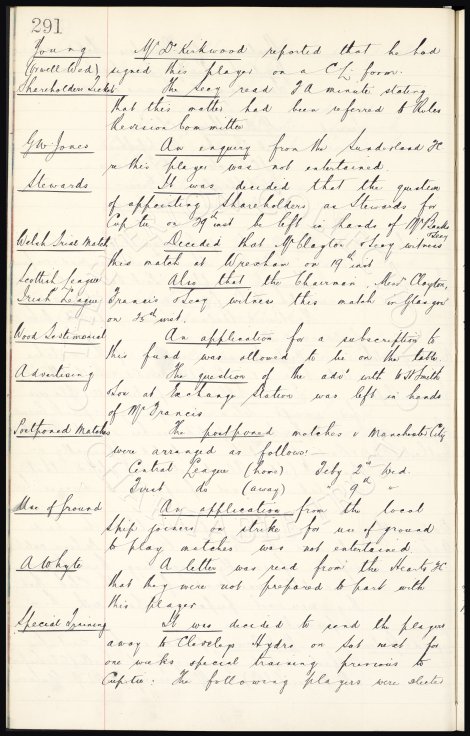 291
Young Mr D. Kirkwood reported that he had
(Crewell Wed) signed this player on a C L form.
Shareholders Ticket The Secy read F A minute stating
that this matter had been referred to Rules
Revision Committee
G W. Jones An enquiry from the Sunderland FC
re this player was not entertained.
Stewards It was decided that the question
of appointing Shareholders as Stewards for
Cup tie on 29th inst be left in hands of Mr Banks
& Secy
Welsh Trial Match Decided that Mr Clayton & Secy witness
this match at Wrexham on 19th inst
Scottish League Also that the Chairman, Messrs Clayton,
Irish League Francis & Secy witness this match in Glasgow
on 25th inst.
Wood Testimonial An application for a subscription to
this fund was allowed to lie on the table.
Advertising The question of the advt with W H Smith
& Son at Exchange Station was left in hands
of Mr Francis
Postponed Matches The postponed matches v Manchester City
were arranged as follows:—
Central League (home) Feby 2nd Wed.
First do (away) " 9th "
Use of Ground An application from the local
Ship joiners on strike for use of ground
to play matches was not entertained
A Whyte A letter was read from the Hearts FC
that they were not prepared to part with
this player
Special Training It was decided to send the players
away to Hydro on Sat next for
one weeks special training previous to
Cup tie: The following players were selected